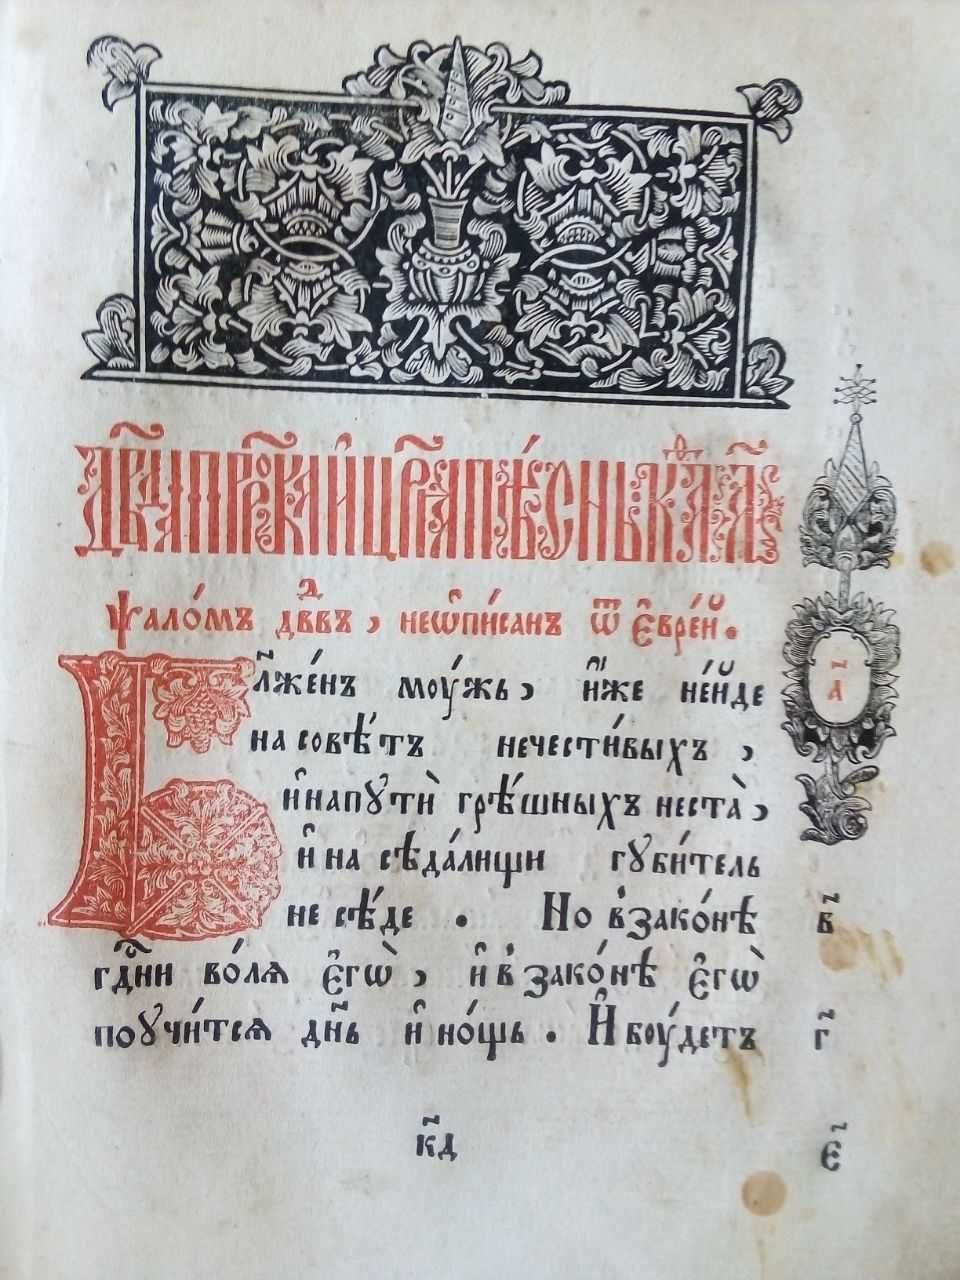 дв҃да прⷪ҇рка и҆ цр҃ѧ пѣ́снь ка҃ѳїⷭ҇ма҃ а҃
ѱало́мъ дв҃двъ, не ѡ҆пи́санъ ѿ є҆врє́й.
Бл҃же́нъ мѹ́жь, и҆́же не и҆́де
на совѣ́тъ нечести́выхъ,
и҆ на пути̑ грѣ́шныхъ не ста̀,
и҆ на сѣда́лищи губи́тель
не сѣ́де. Но в̾ зако́нѣ
гдⷭ҇ни во́лѧ є҆гѡ̀, и҆ в̾ зако́нѣ є҆гѡ̀
поучи́тсѧ дн҃ь и҆ но́щь. И҆ бѹ́детъ
а҃
в҃
г҃
к҃д
є҃